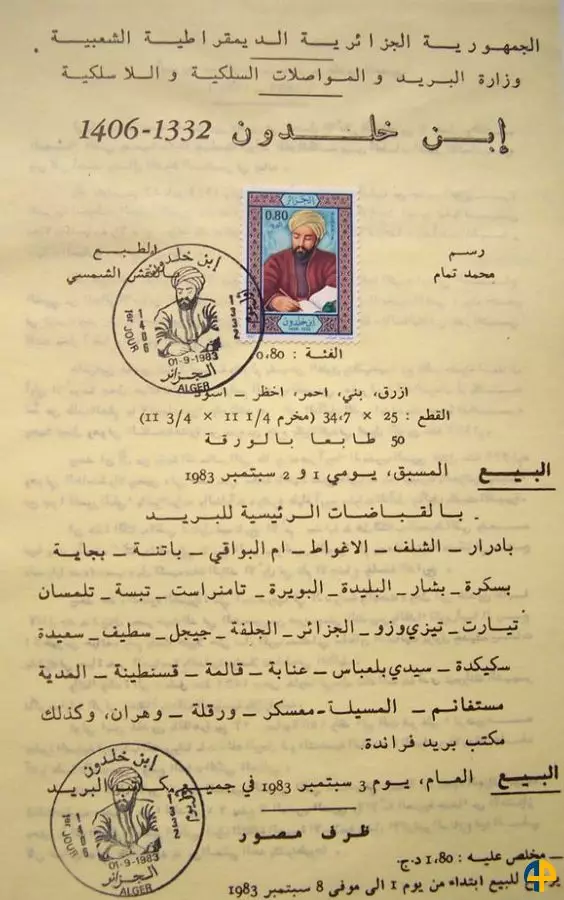 الجمهورية الجزائرية الديمقراطية الشعبية
وزارة البريد والمواصلات السلكية واللاسلكية
إبن خلدون 1332-1406
الجزائر
0.80
ابن خلدون
رسم
محمد تمام
الطبع
بالنقش الشمسي
ابن خلدون
1er JOUR
01-9-1983
الجزائر
ALGER
الفئة : 0،80
ازرق، بني، احمر، اخظر - اسود
القطع : 25 × 34،7 (مخرم 11 1/4 × 11 3/4)
50 طابعا بالورقة
البيع المسبق، يومي 1 و 2 سبتمبر 1983
بالقباضات الرئيسية للبريد
بادرار - الشلف - الاغواط - ام البواقي - باتنة - بجاية
بسكرة - بشار - البليدة - البويرة - تامنراست - تبسة - تلمسان
تيارت - تيزي وزو - الجزائر - الجلفة - جيجل - سطيف - سعيدة
سكيكدة - سيدي بلعباس - عنابة - قالمة - قسنطينة - المدية
مستغانم - المسيلة - معسكر - ورقلة - وهران، وكذلك
مكتب بريد فراندة.
البيع العام، يوم 3 سبتمبر 1983 في جميع مكاتب البريد
ظرف مصور
- مخلص عليه : 1،80 د.ج.
للبيع ابتداء من يوم 1 الى موفى 8 سبتمبر 1983
ابن خلدون
1er JOUR
01-9-1983
الجزائر
ALGER